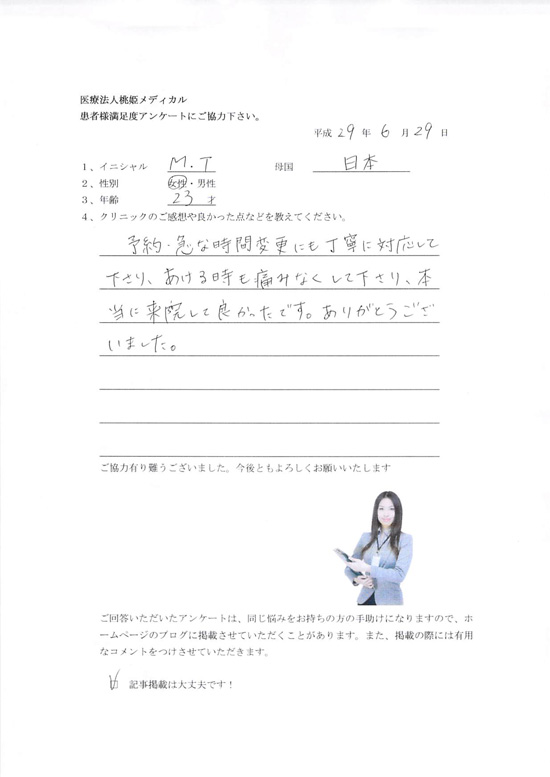 医療法人桃姫メディカル
患者様満足度アンケートにご協力下さい。
平成 29 年 6 月 29 日
1、イニシャル M.T 母国 日本
2、性別 女性・男性
3、年齢 23 才
4、クリニックのご感想や良かった点などを教えてください。
予約・急な時間変更にも丁寧に対応して
下さり、あける時も痛みなくして下さり、本
当に来院して良かったです。ありがとうござ
いました。
ご協力有り難うございました。今後ともよろしくお願いいたします
ご回答いただいたアンケートは、同じ悩みをお持ちの方の手助けになりますので、ホ
ームページのブログに掲載させていただくことがあります。また、掲載の際には有用
なコメントをつけさせていただきます。
記事掲載は大丈夫です！